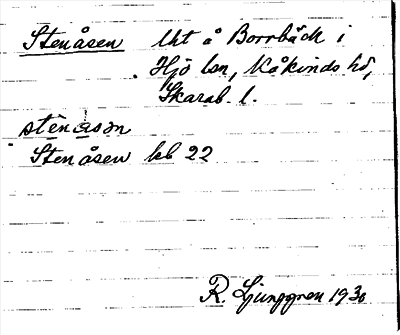 Stenåsen Lht å Borrbäck i
Hjo lsn, Kåkinds hd,
Skarab. l.
stènåsən
Stenåsen kb 22
R. Ljunggren 1930